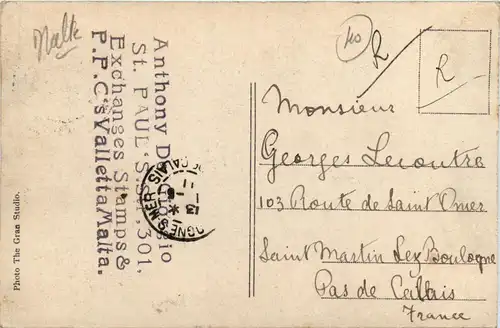 Malte
Anthony D
St. PAUL'S.Str, 301,
Exchanges Stamps &
P.P.C's Valletta Malta.
Photo The Gran Studio.
40
R
R
Monsieur
Georges Lecoutre
103 Route de Saint Omer
Saint Martin Lez Boulogne
Pas de Calais
France